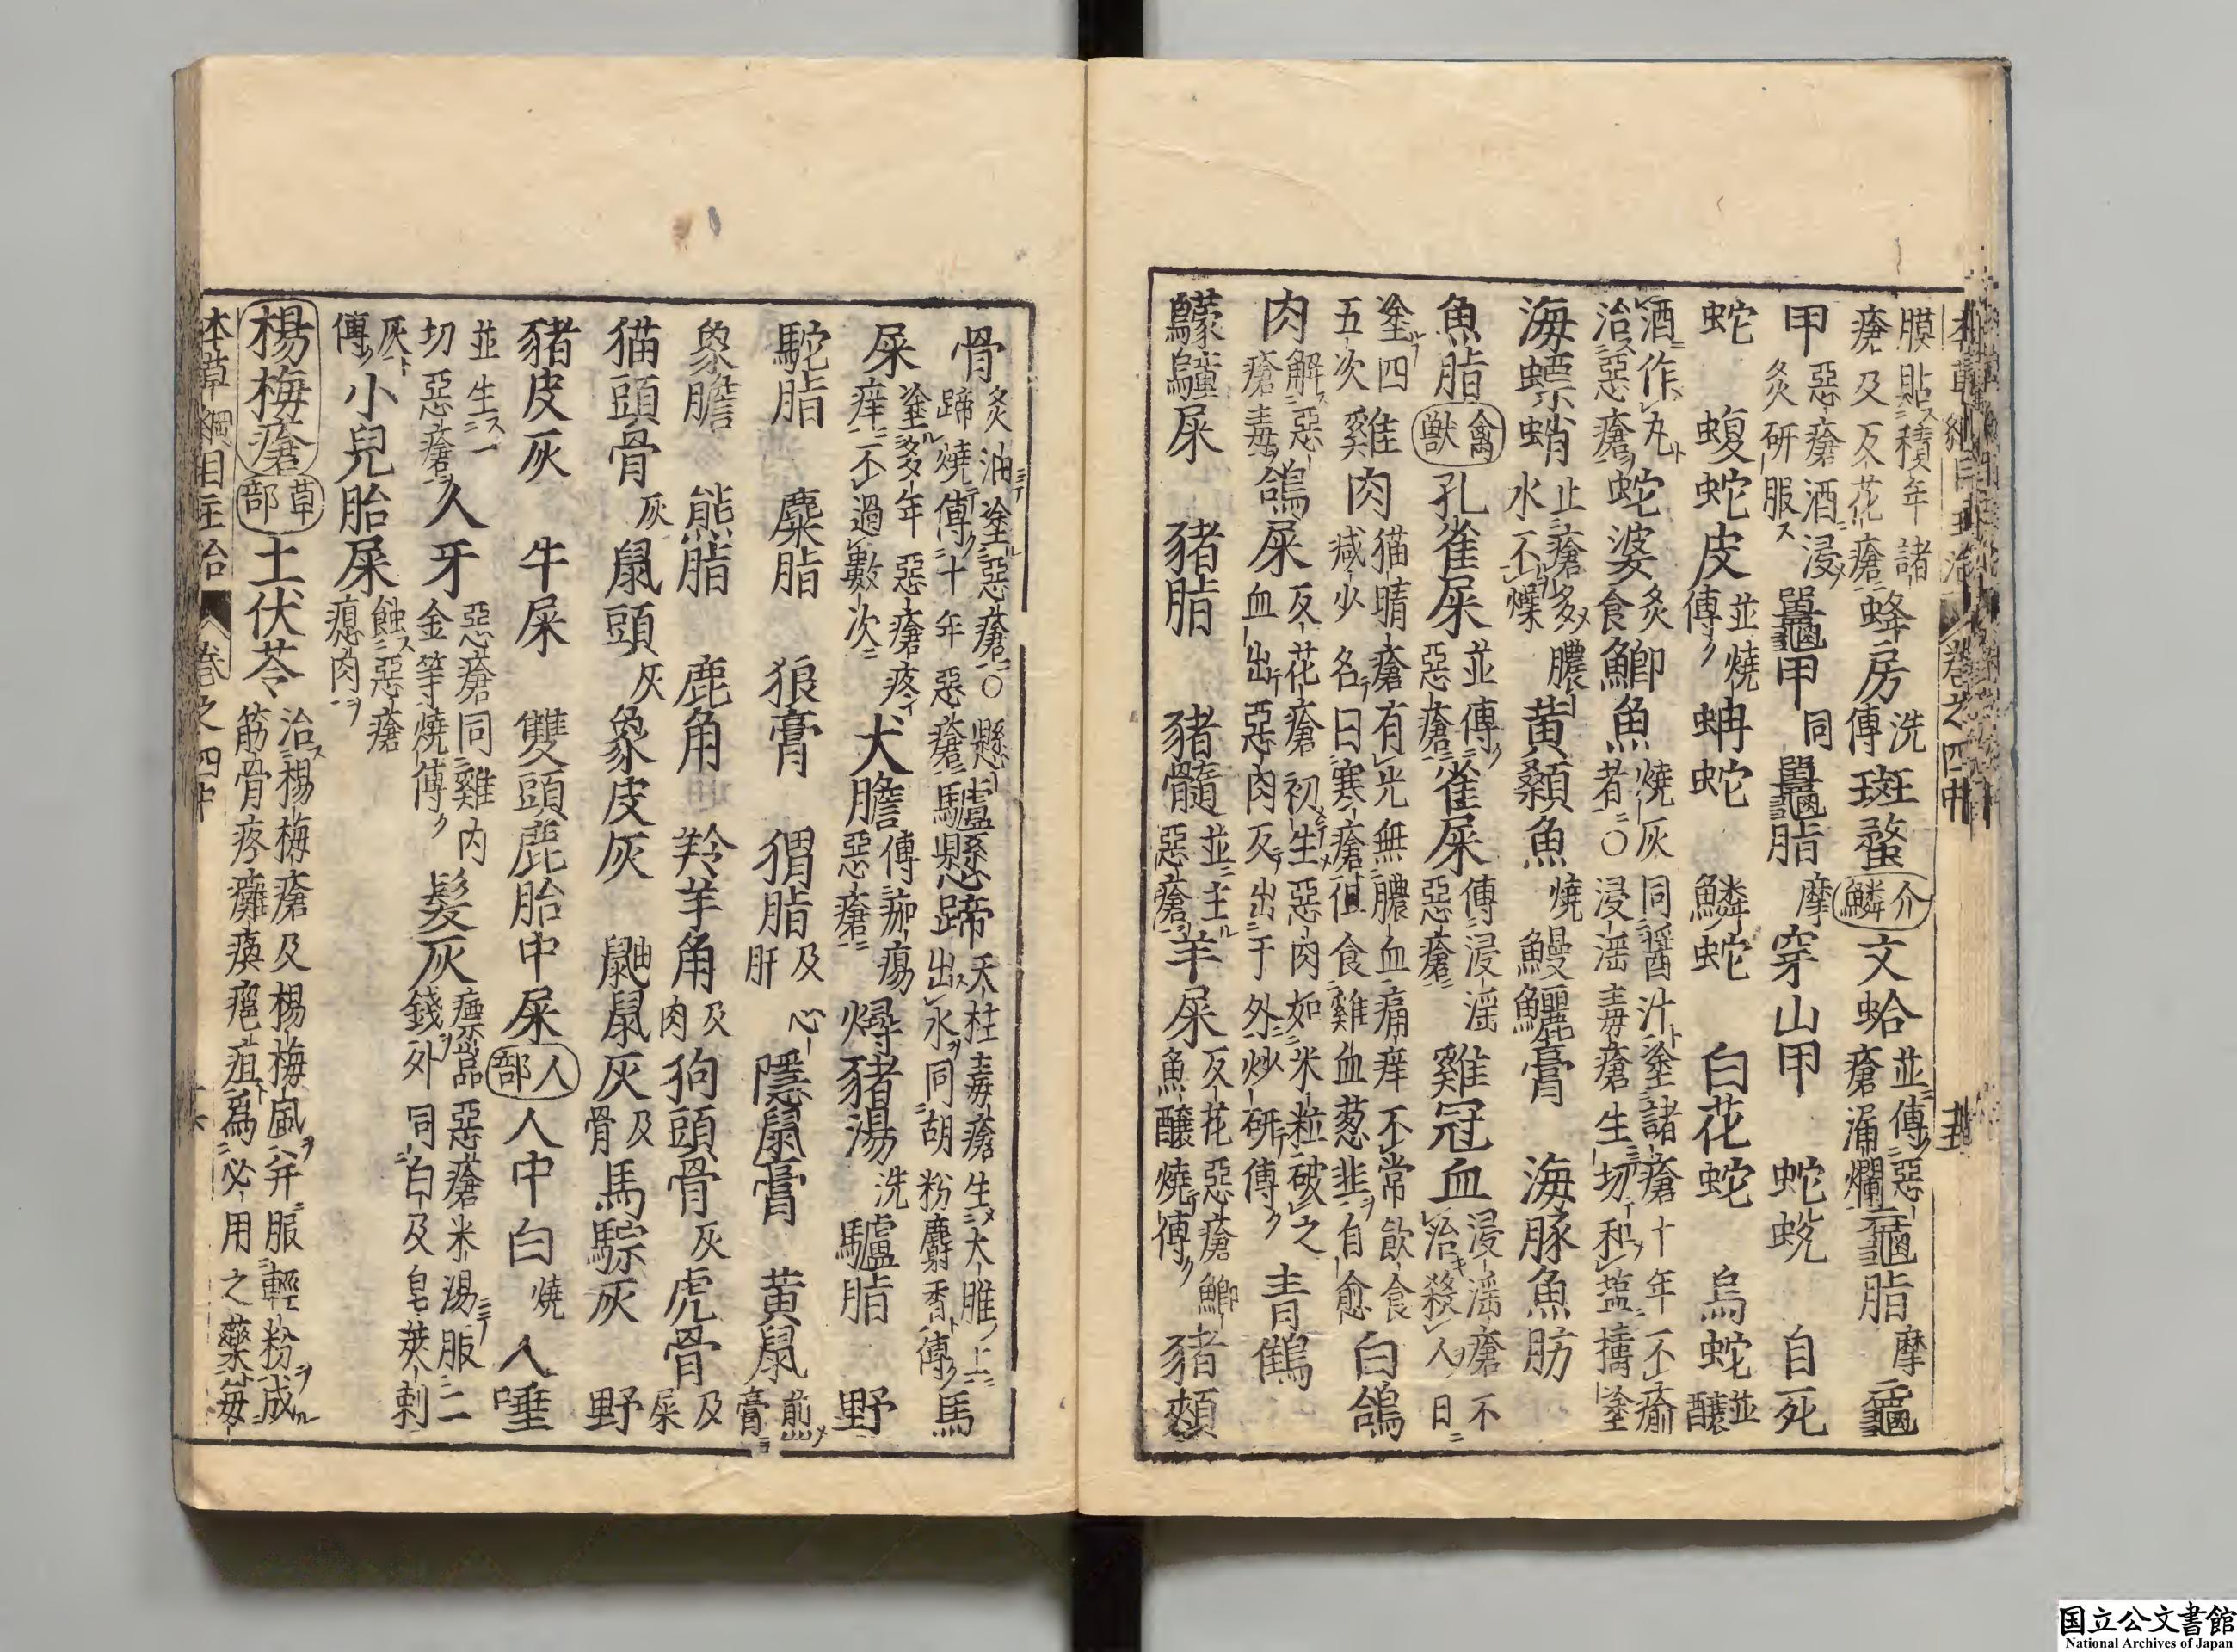 膜貼積年諸瘡及反花瘡蜂房洗傅斑蝥介鱗文蛤並傅惡瘡漏爛龜脂摩龜
甲惡瘡酒浸炙研服鼉甲同鼉脂摩穿山甲蛇蛻自死
蛇蝮蛇皮並燒傅蚺蛇鱗蛇白花蛇烏蛇並釀
酒作丸治惡瘡蛇婆炙食鯽魚燒灰同醬汁塗諸瘡十年不瘉者〇浸淫毒瘡生切和塩擣塗
海螵蛸止瘡多膿水不燥黃顙魚燒鰻鱺膏海豚魚肪
魚脂禽獸孔雀屎並傅惡瘡雀屎傅浸淫惡瘡雞冠血浸淫瘡不治殺人日
塗四五次雞肉猫睛瘡有光無膿血痛痒不常飲食減少名曰寒瘡但食雞血葱韭自愈白鴿
肉解惡瘡毒鴿屎反花瘡初生惡肉如米粒破之血出惡肉反出于外炒研傅青鶴
鸏䴀屎豬脂豬髓並主惡瘡羊屎反花惡瘡鯽魚釀燒傅豬頰
骨炙油塗惡瘡〇懸蹄燒傅十年惡瘡驢懸蹄天柱毒瘡生大腄上出水同胡粉麝香傅馬
屎塗多年惡瘡疼痒不過數次犬膽傅痂瘍惡瘡燖豬湯洗驢脂野
駝脂麋脂狼膏猬脂及心肝隱鼠膏黃鼠煎膏
象膽熊脂鹿角羚羊角及肉狗頭骨灰虎骨及屎
猫頭骨灰鼠頭灰象皮灰鼬鼠灰及骨馬騌灰野
豬皮灰牛屎雙頭鹿胎中屎人部人中白燒人唾
並主一切惡瘡人牙惡瘡同雞內金等燒傅髮灰瘭疽惡瘡米湯服二錢外同白及皂莢刺
灰傅小兒胎屎蝕惡瘡瘜肉
楊梅瘡草部土茯苓治楊梅瘡及楊梅風并服輕粉成筋骨疼癱瘓癰疽為必用之藥每
本草綱目主治巻之四中
国立公文書館
National Archives of Japan